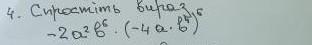 4. Спростіть вираз
-2a²b⁶ · (-4a · b⁴)⁶